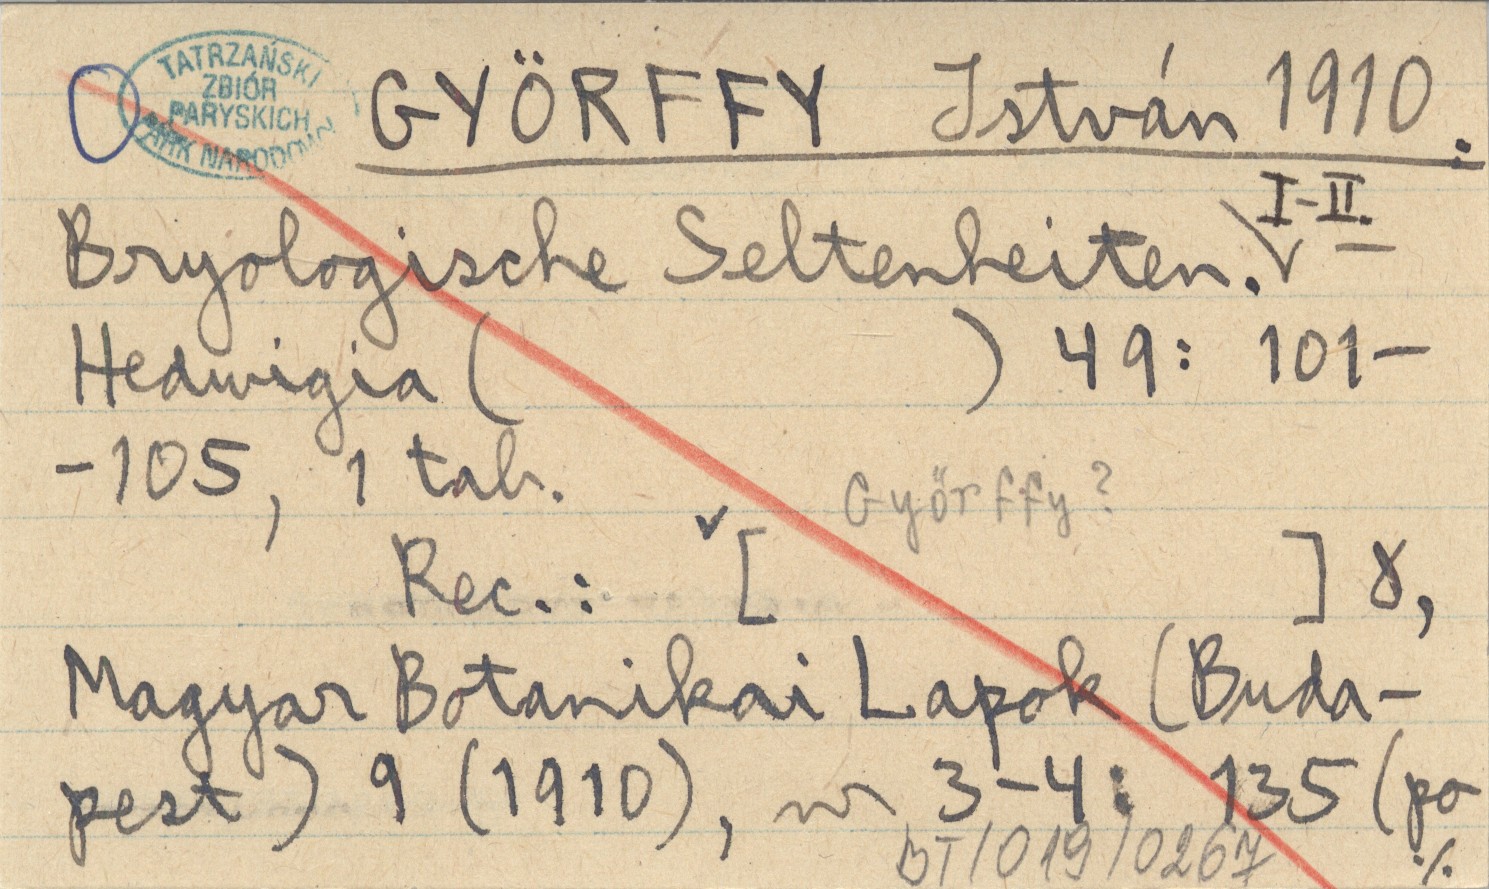 TATRZAŃSKI
ZBIÓR
PARYSKICH
PARK NARODOWY
GYÖRFFY István 1910.
I-II.
Bryologische Seltenheiten. √ —
Hedwigia ( ) 49: 101-
-105, 1 tab.
Györffy?
Rec.: [ ] 8,
Magyar Botanikai Lapok (Buda-
pest) 9 (1910), nr 3-4: 135 (po
DT/019/0267
./.